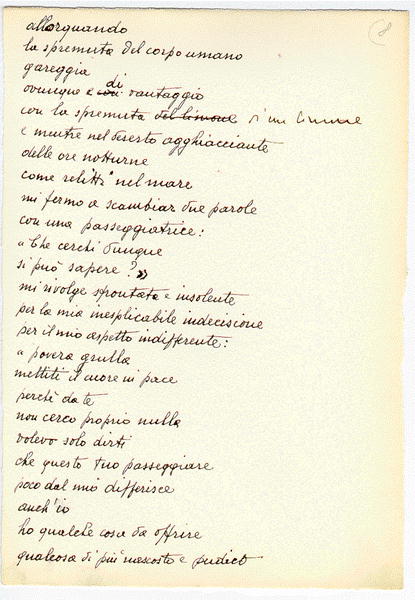 8
allorquando
la spremuta del corpo umano
gareggia
ovunque e con di vantaggio
con la spremuta del limone d'un limone
e mentre nel deserto agghiacciante
delle ore notturne
come relitti nel mare
mi fermo a scambiar due parole
con una passeggiatrice:
"Che cerchi dunque
si può sapere?»
mi rivolge sfrontata e insolente
per la mia inesplicabile indecisione
per il mio aspetto indifferente:
"povera grulla
mettiti il cuore in pace
perché da te
non cerco proprio nulla
volevo solo dirti
che questo tuo passeggiare
poco dal mio differisce
anch'io
ho qualche cosa da offrire
qualcosa di più nascosto e pudico